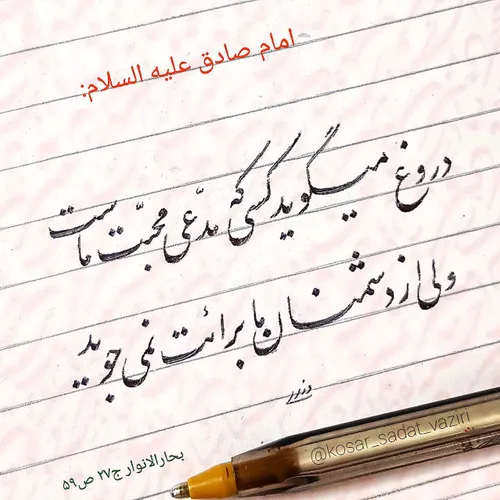 امام صادق علیه السلام:
دروغ میگوید کسی که مدّعی محبّت ماست
ولی از دشمنان ما برائت نمی جوید
وزیری
@kosar_sadat_vaziri
بحارالانوار ج۲۷ ص۵۹